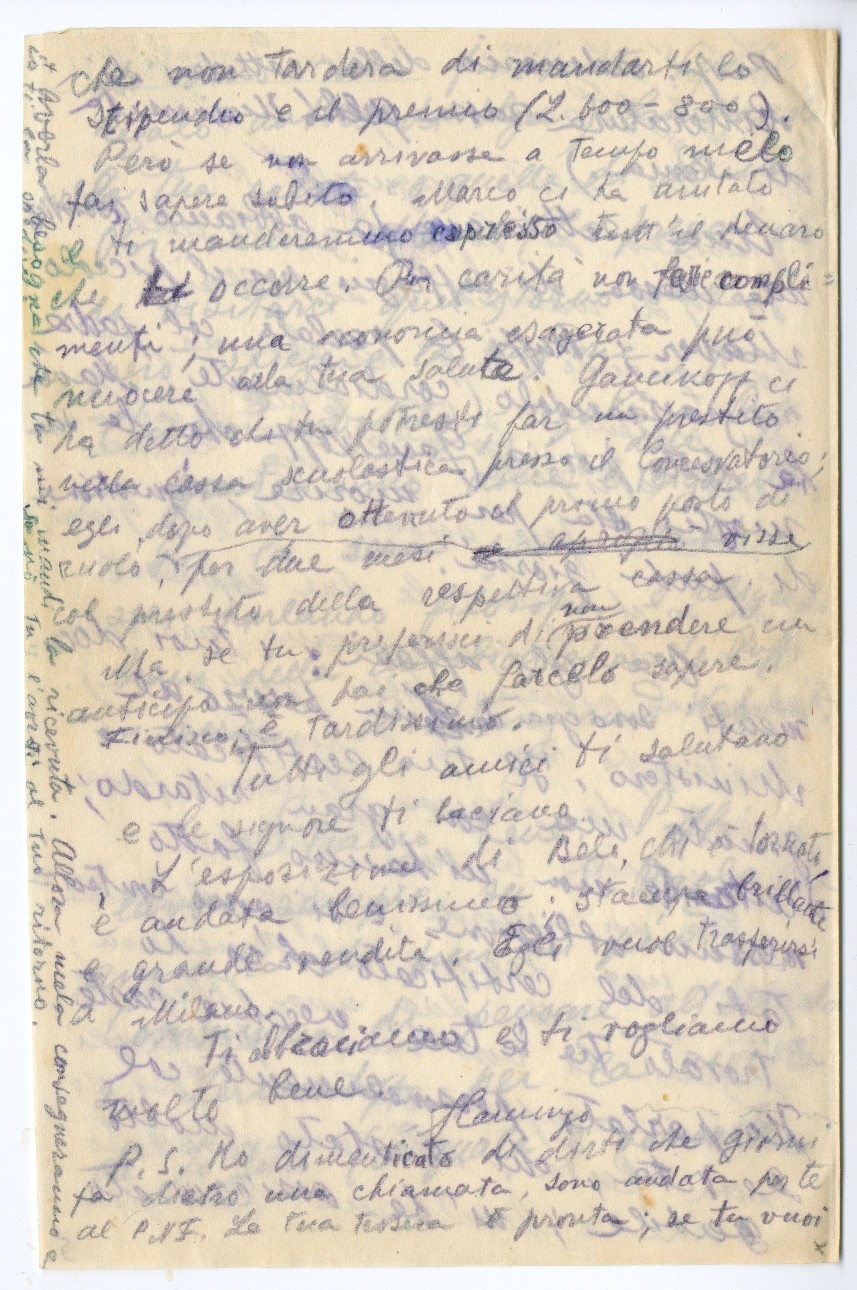 che non tarderà di mandarti lo
stipendio e il premio (L. 600-800).
Però se non arrivasse a tempo mèlo
fai sapere subito. Marco ci ha aiutato
e ti manderemmo espresso tutt'il denaro
che ti occorre. Per carità non fare compli=
menti; una economia esagerata può
nuocere alla tua salute. Gauckopf ci
ha detto che tu potresti far un prestito
nella cassa scuolastica presso il Conservatorio;
egli, dopo aver ottenuto il primo posto di
ruolo, per due mesi visse
col prestito della respettiva cassa.
Ma, se tu preferisci di non prendere un
anticipo non hai che farcelo sapere.
Finisco, è tardissimo.
Tutti gli amici ti salutano
e le signore ti baciano.
L'esposizione di Bels, chi è tornato,
è andata benissimo; stampa brillante
e grande vendita. Egli vuol trasferirsi
a Milano.
Ti abbracciamo e ti vogliamo
molto bene.
Flamingo
P.S. Ho dimenticato di dirti che giorni
fa dietro una chiamata, sono andata per te
al P.N.F. La tua tessera è pronta; se tu vuoi
x
x averla bisogna che tu mi mandi la ricevuta. Allora mela consegneranno e
io ti la spedirei. Se no tu l'avrai al tuo ritorno.